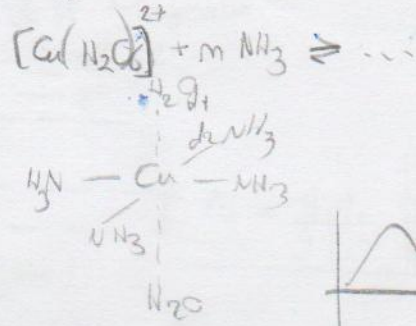 [Cu(H₂O)₆]²⁺ + n NH₃ ⇌ ...
H₂O d₁
d₂ NH₃
H₃N — Cu — NH₃
NH₃
H₂O